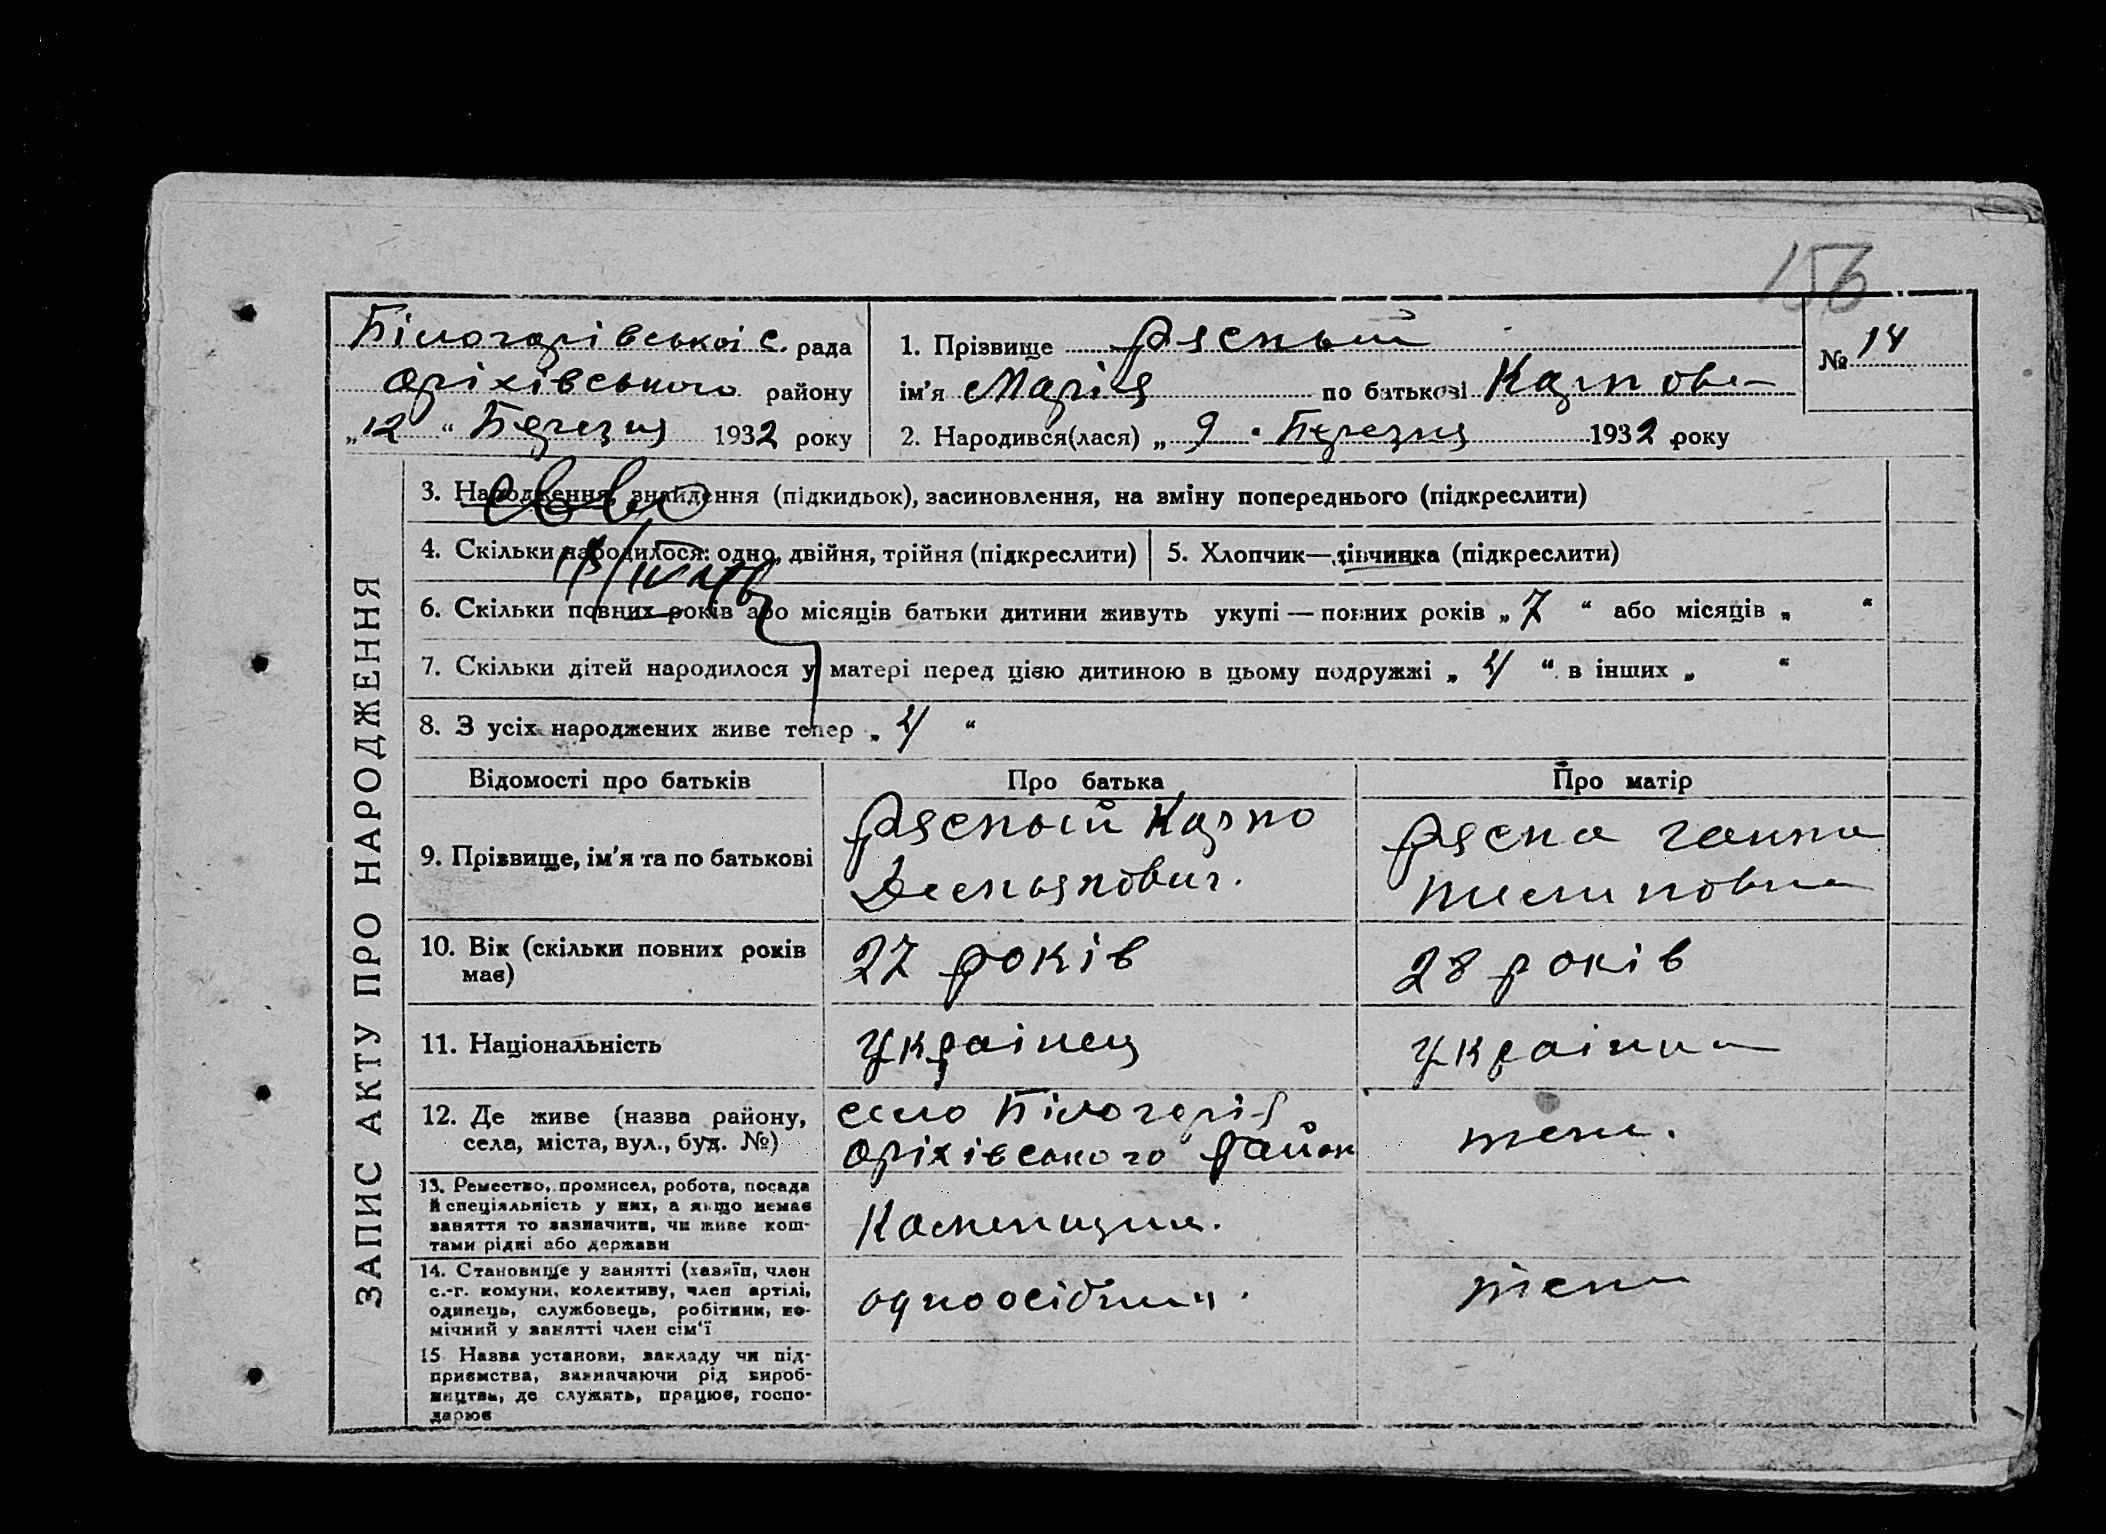 156
Білогорівської с. рада
Оріхівського району
„12“ Березня 1932 року
1. Прізвище Рясный
ім'я Марія по батькові Карповна
2. Народився(лася) „ 9 " Березня 1932 року
№ 14
ЗАПИС АКТУ ПРО НАРОДЖЕННЯ
3. Народження, знайдення (підкидьок), засиновлення, на зміну попереднього (підкреслити)
4. Скільки народилося: одно, двійня, трійня (підкреслити)
5. Хлопчик—дівчинка (підкреслити)
6. Скільки повних років або місяців батьки дитини живуть укупі — повних років „ 7 “ або місяців „ “
7. Скільки дітей народилося у матері перед цією дитиною в цьому подружжі „ 4 “ в інших „ “
8. З усіх народжених живе тепер „ 4 “
Відомості про батьків Про батька Про матір
9. Прізвище, ім'я та по батькові
Рясный Карпо
Рясна Ганна
10. Вік (скільки повних років
має)
27 років
28 років
11. Національність
українец
українка
12. Де живе (назва району,
села, міста, вул., буд. №)
село Білогорія
Оріхівського район
теж.
13. Ремество, промисел, робота, посада
й спеціяльність у них, а якщо немає
заняття то зазначити, чи живе кош-
тами рідні або держави
14. Становище у занятті (хазяїн, член
с.-г. комуни, колективу, член артілі,
одинець, службовець, робітник, по-
мічний у занятті член сім'ї
одноосібник.
теж
15 Назва установи, закладу чи під-
приємства, зазначаючи рід вироб-
ництва, де служать, працює, госпо-
дарює